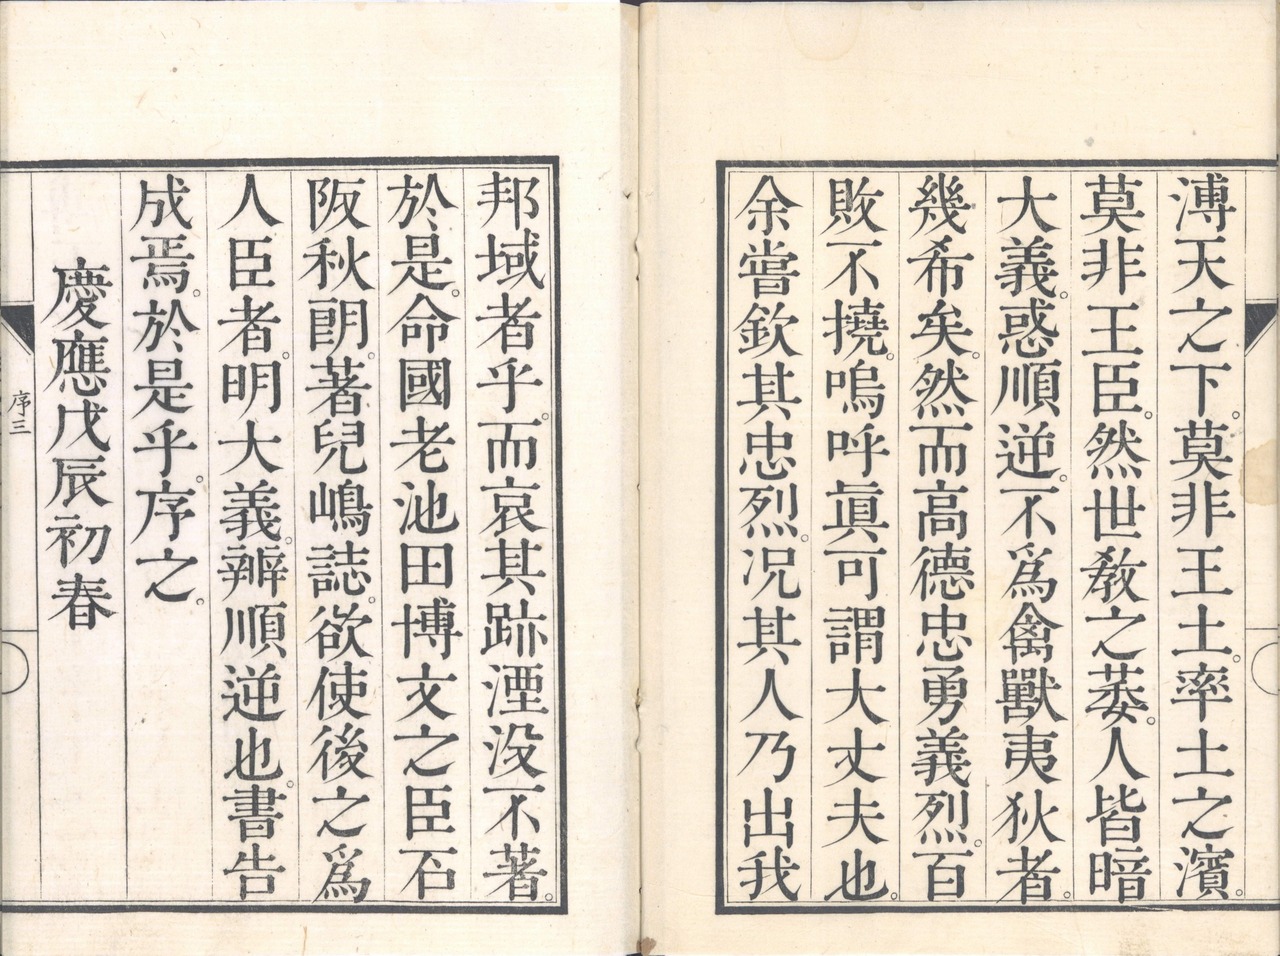 溥天之下。莫非王土。率土之濱。
莫非王臣。然世教之萎。人皆暗
大義。惑順逆。不爲禽獸夷狄者。
幾希矣。然而高德忠勇義烈。百
敗不撓。嗚呼眞可謂大丈夫也。
余嘗欽其忠烈。况其人乃出我
邦域者乎。而哀其跡湮没不著。
於是。命國老池田博文之臣石
阪秋朗。著兒嶋誌。欲使後之爲
人臣者。明大義。辨順逆也。書告
成焉。於是乎。序之。
慶應戊辰初春
序三